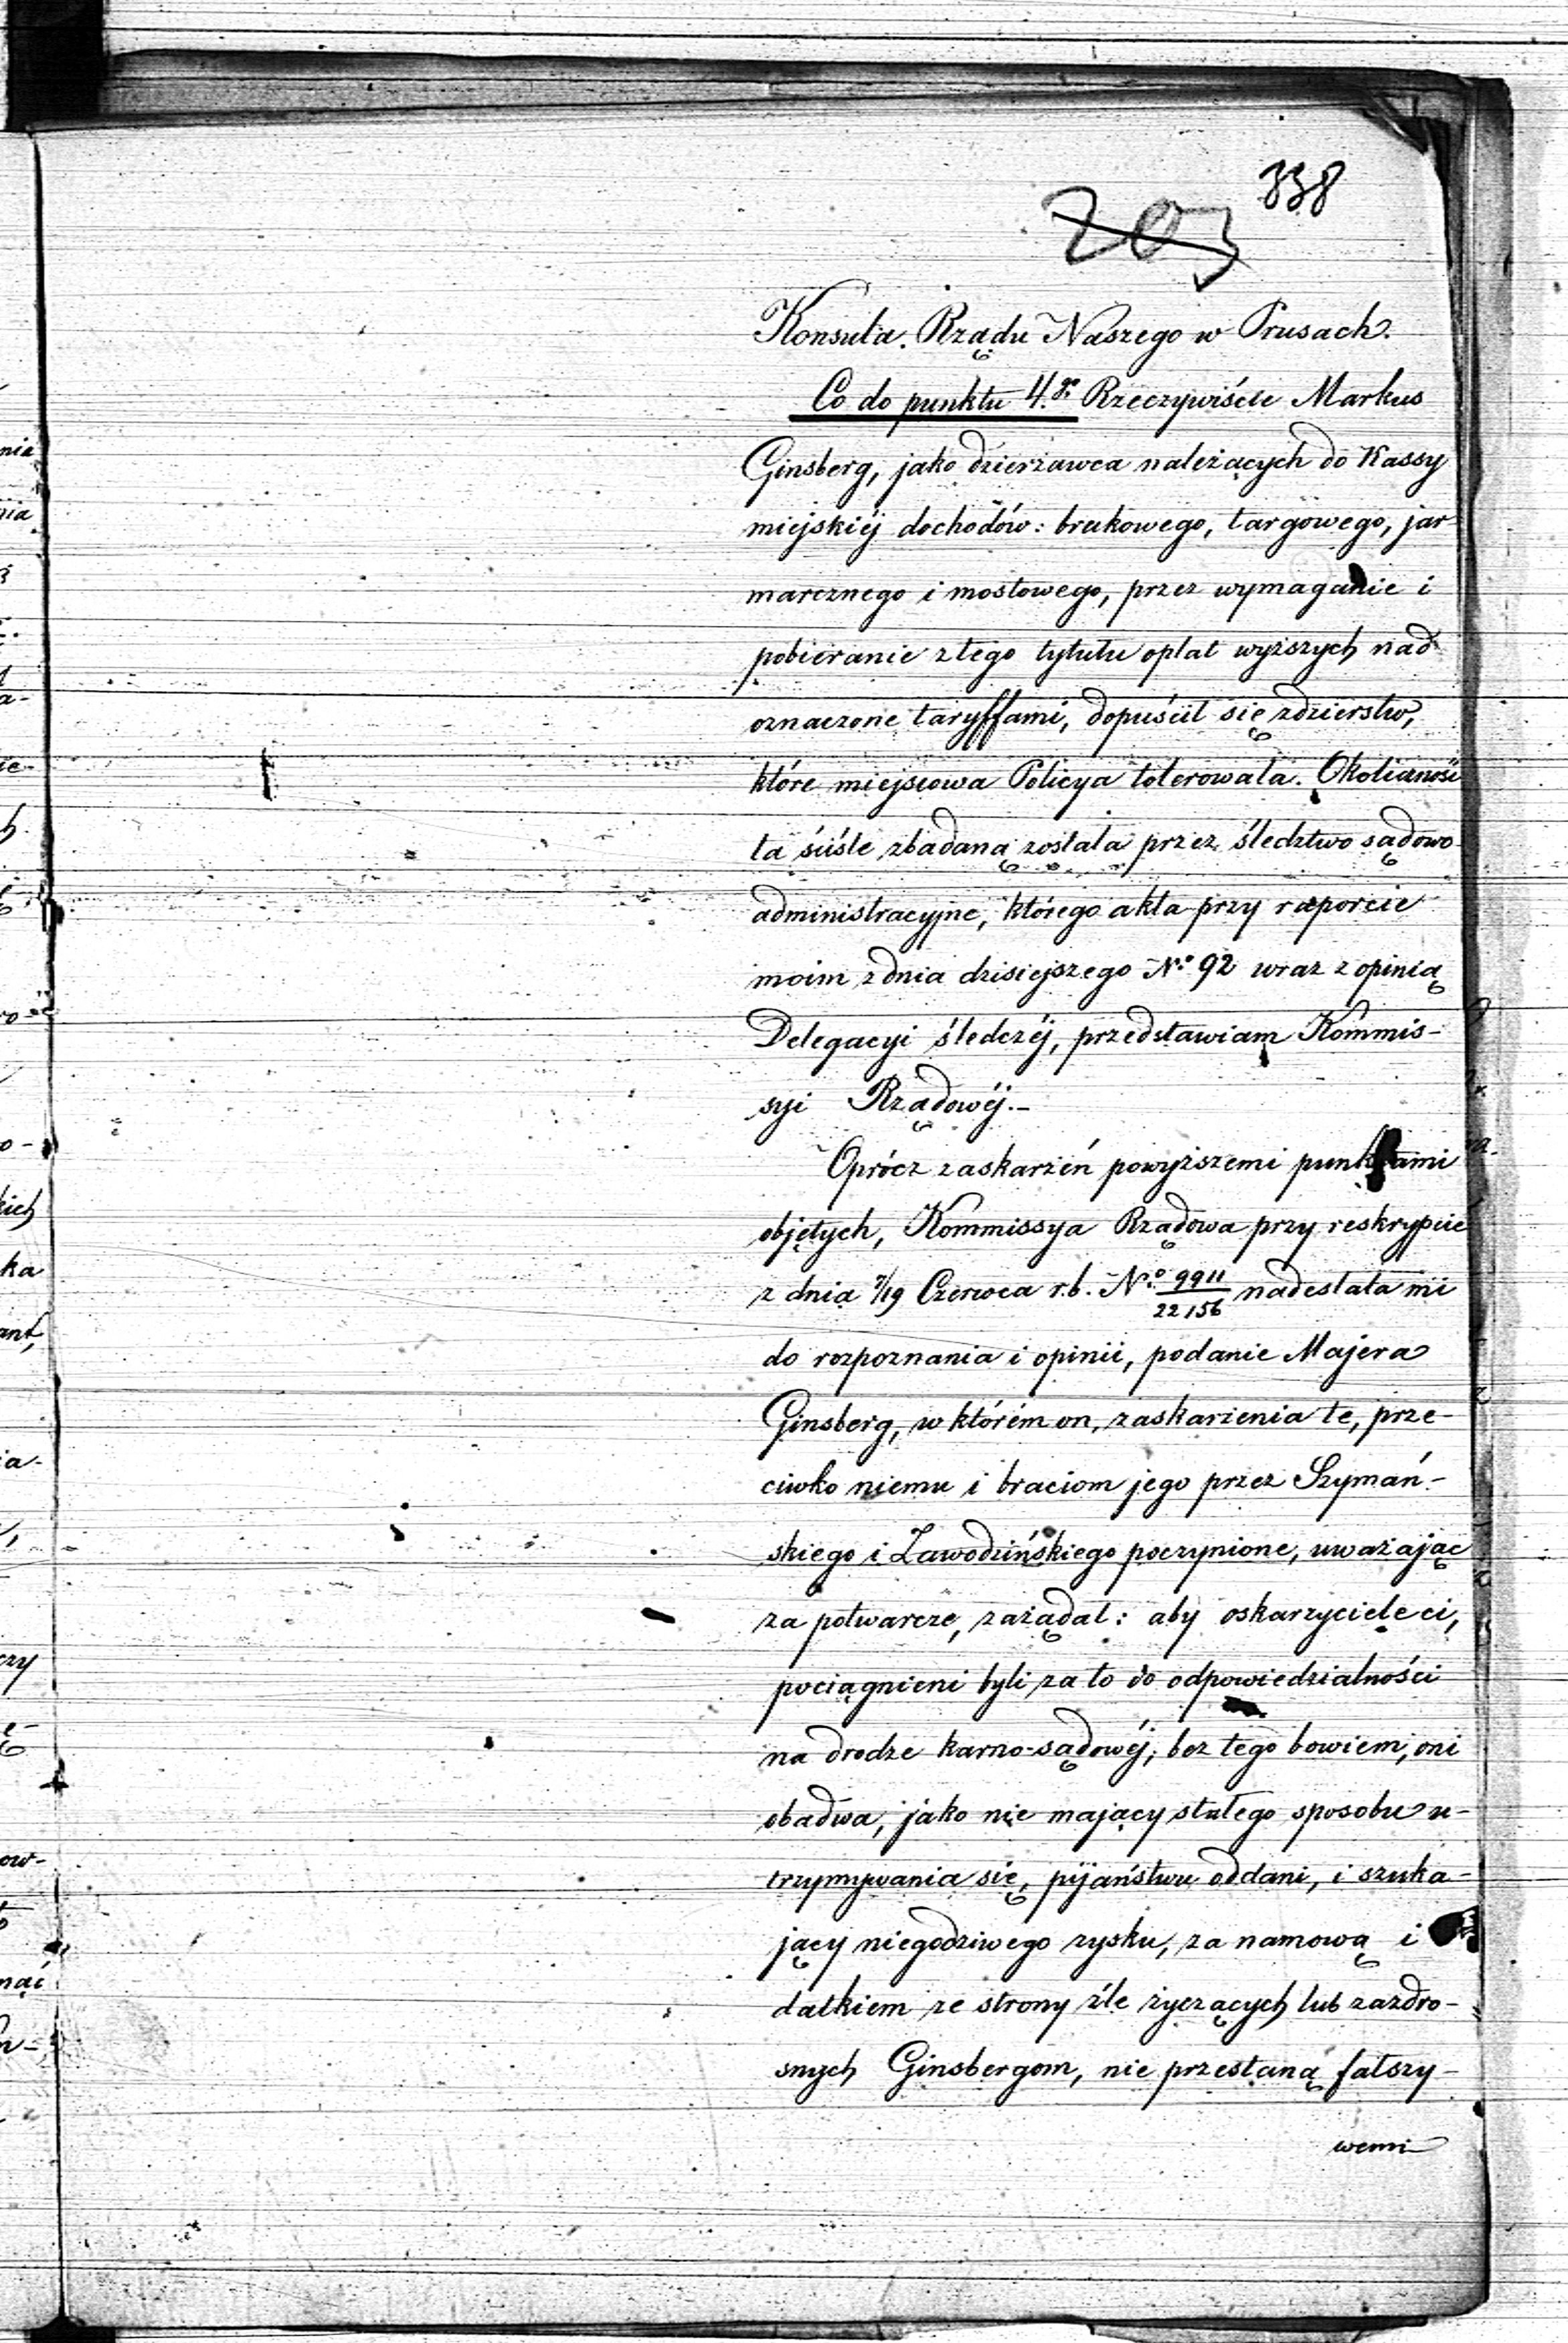 338
203
Konsula Rządu Naszego w Prusach.
Co do punktu 4.go Rzeczywiście Markus
Ginsberg, jako dzierżawca należących do Kassy
miejskiéj dochodów: brukowego, targowego, jar-
marcznego i mostowego, przez wymaganie i
pobieranie z tego tytułu opłat wyższych nad
oznaczone taryffami, dopuścił się zdzierstw,
które miejscowa Policya tolerowała. Okoliczność
ta ściśle zbadaną została przez śledztwo sądowo-
administracyjne, którego akta przy raporcie
moim z dnia dzisiejszego No 92 wraz z opinią
Delegacyi śledczéj, przedstawiam Kommis-
syi Rządowéj.-
Oprócz zaskarżeń powyższemi punktami
objętych, Kommissya Rządowa przy reskrypcie
z dnia 7/19 Czerwca r.b. No 9911/22156 nadesłała mi
do rozpoznania i opinii, podanie Majera
Ginsberg, w którém on, zaskarżenia te, prze-
ciwko niemu i braciom jego przez Szymań-
skiego i Zawodzińskiego poczynione, uważając
za potwarcze, zażądał: aby oskarzyciele ci,
pociągnieni byli za to do odpowiedzialności
na drodze karno-sądowéj; bez tego bowiem, oni
obadwa, jako nie mający stałego sposobu u-
trzymywania się, pijaństwu oddani, i szuka-
jący niegodziwego zysku, za namową i
datkiem ze strony źle życzących lub zazdro-
snych Ginsbergom, nie przestaną fałszy-
wemi